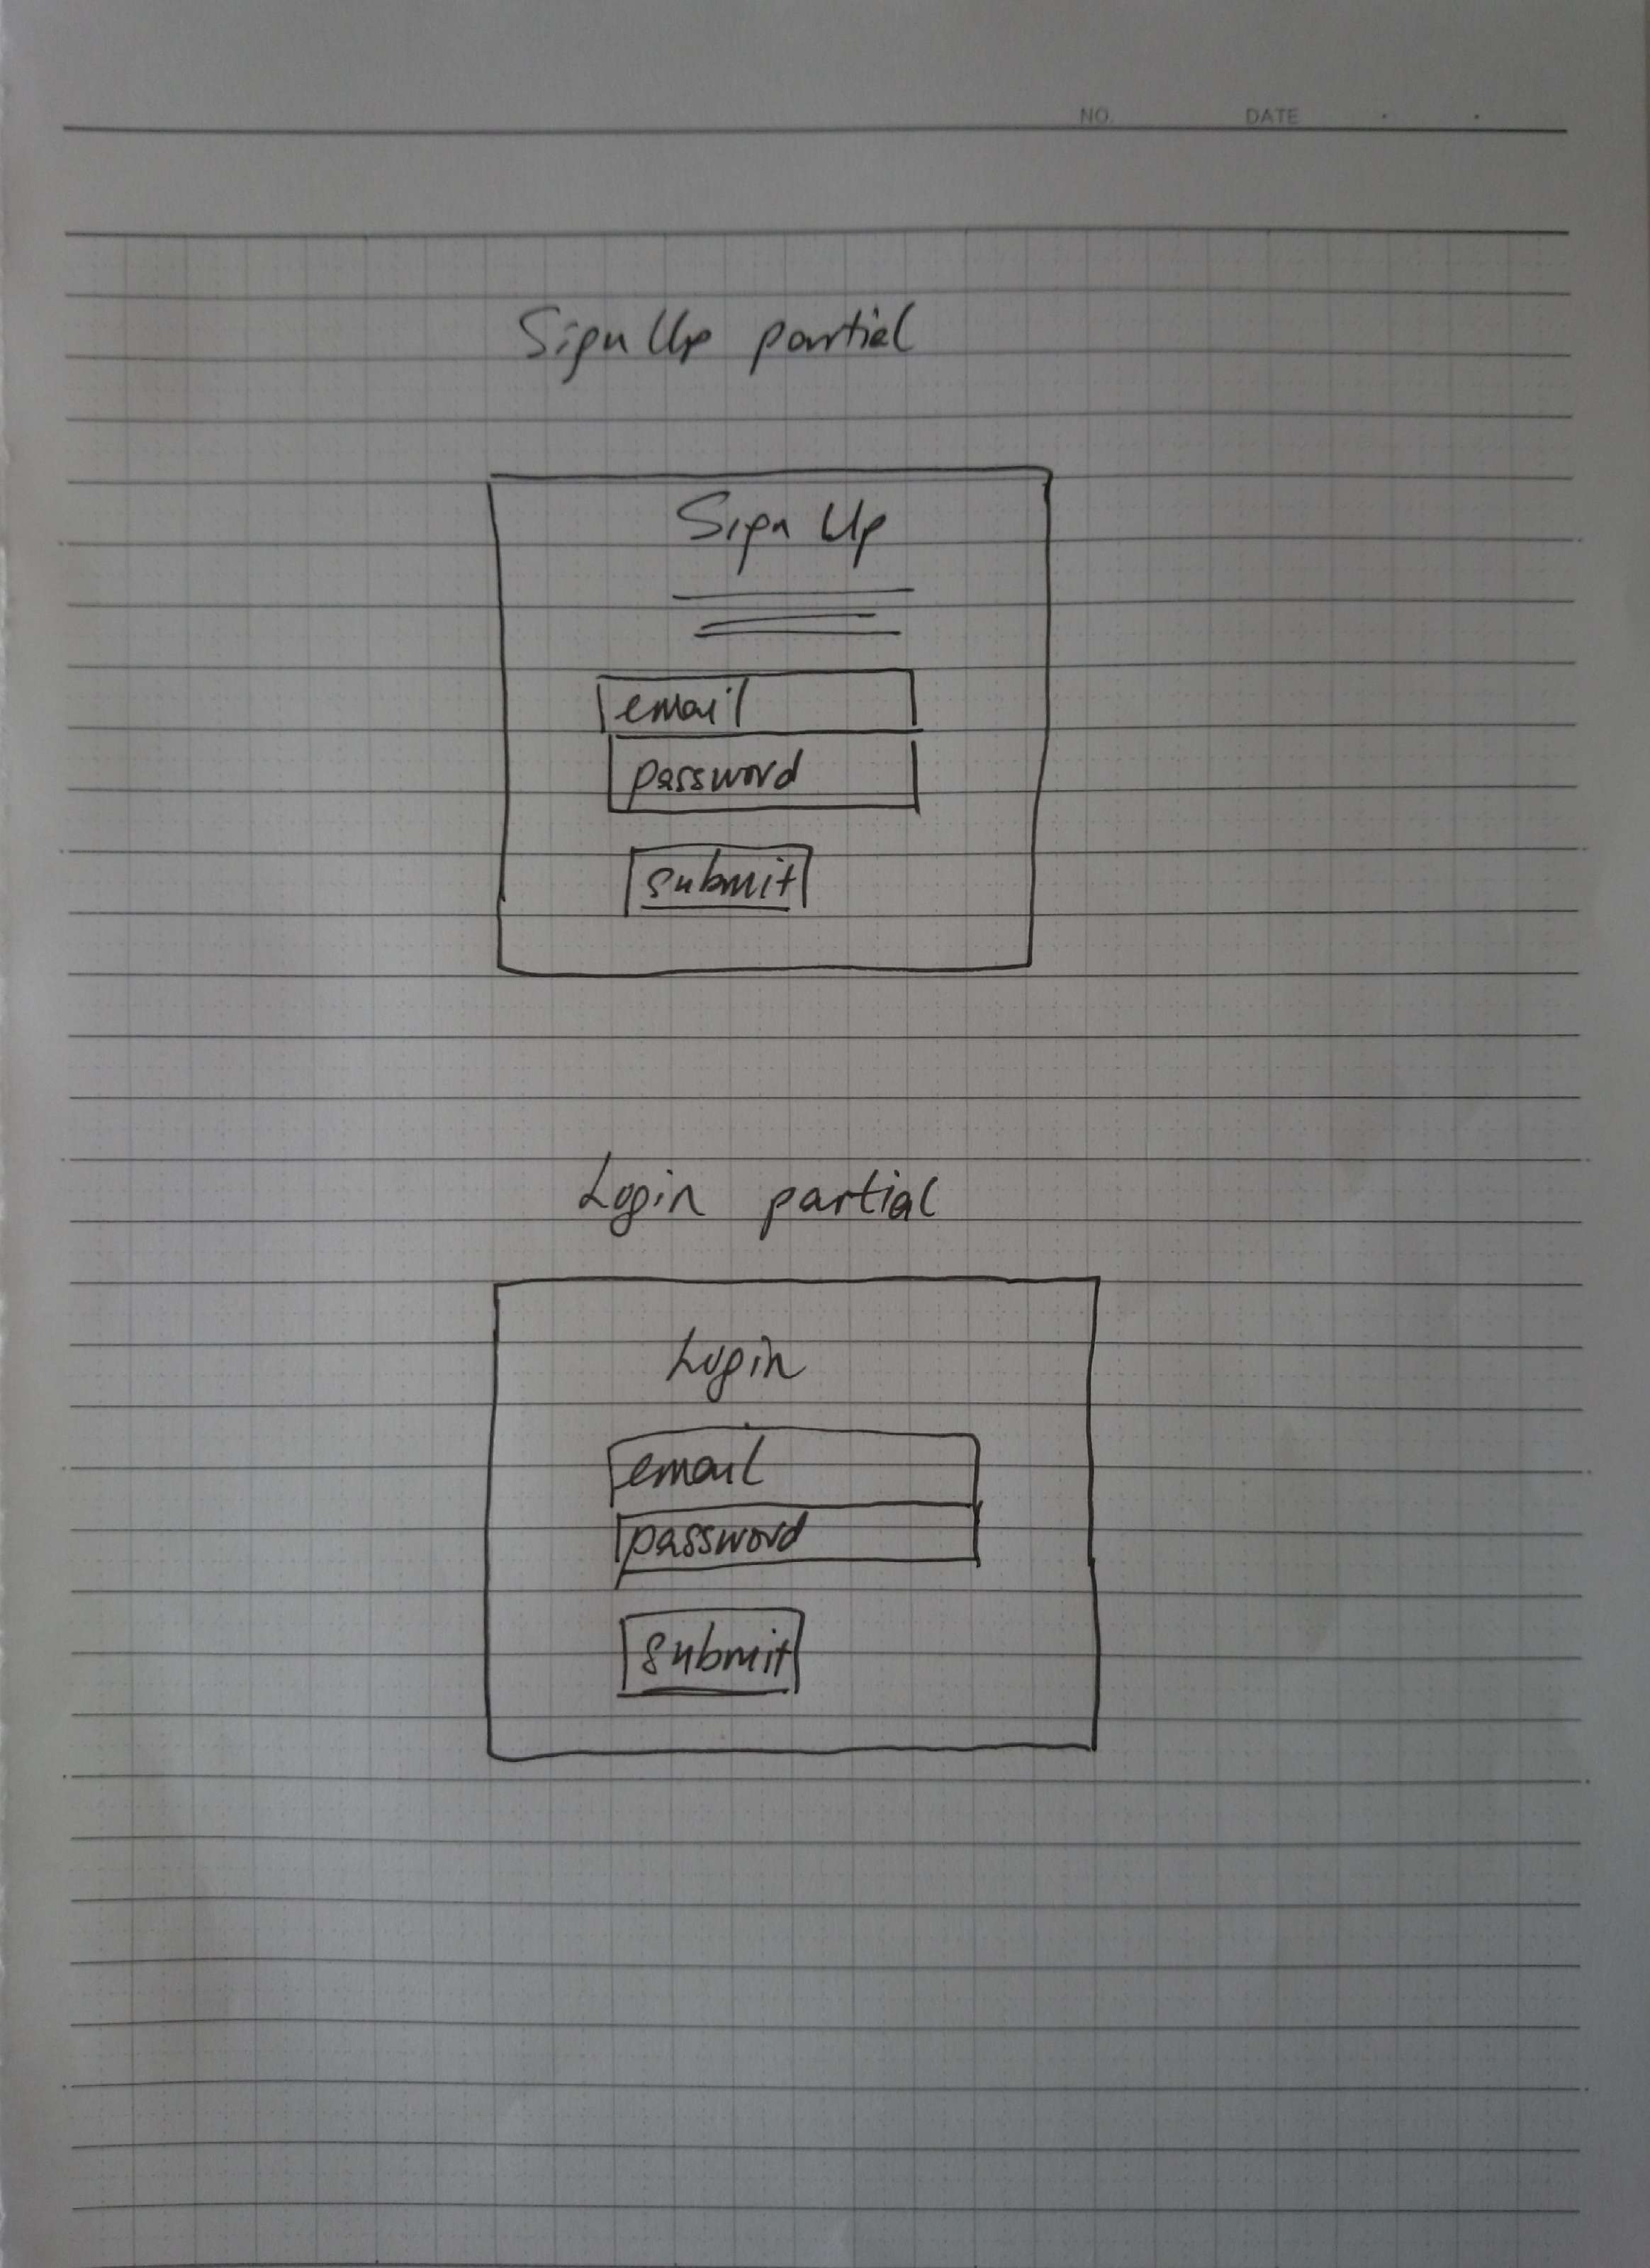 NO.
DATE
Sign Up partial
Sign Up
email
password
submit
Login partial
Login
email
password
submit